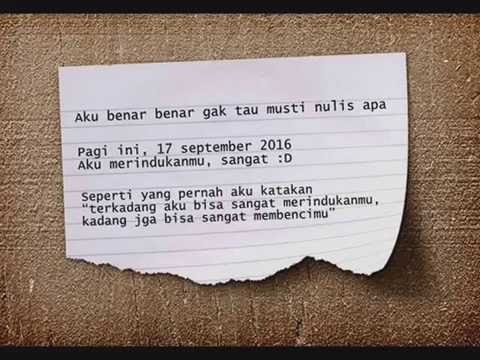 Aku benar benar gak tau musti nulis apa
Pagi ini, 17 september 2016
Aku merindukanmu, sangat :D
Seperti yang pernah aku katakan
"terkadang aku bisa sangat merindukanmu,
kadang jga bisa sangat membencimu"